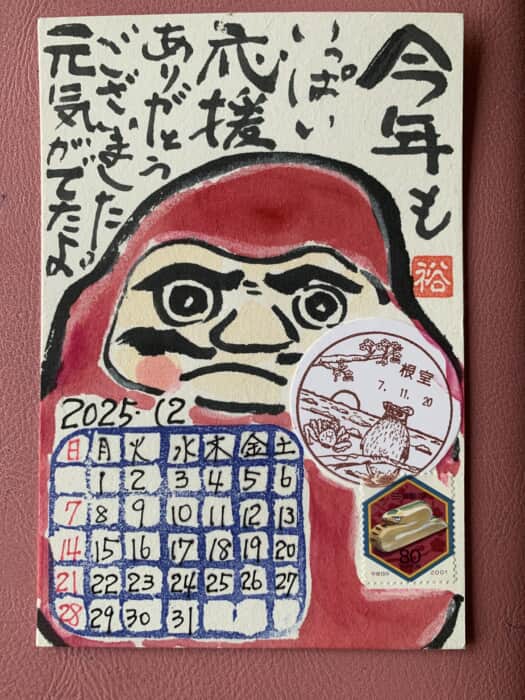 今年も
いっぱい
応援
ありがとう
ございました。
元気がでたよ。
裕
根室
7.11.20
2025.12
日 月 火 水 木 金 土
1 2 3 4 5 6
7 8 9 10 11 12 13
14 15 16 17 18 19 20
21 22 23 24 25 26 27
28 29 30 31
80
2001